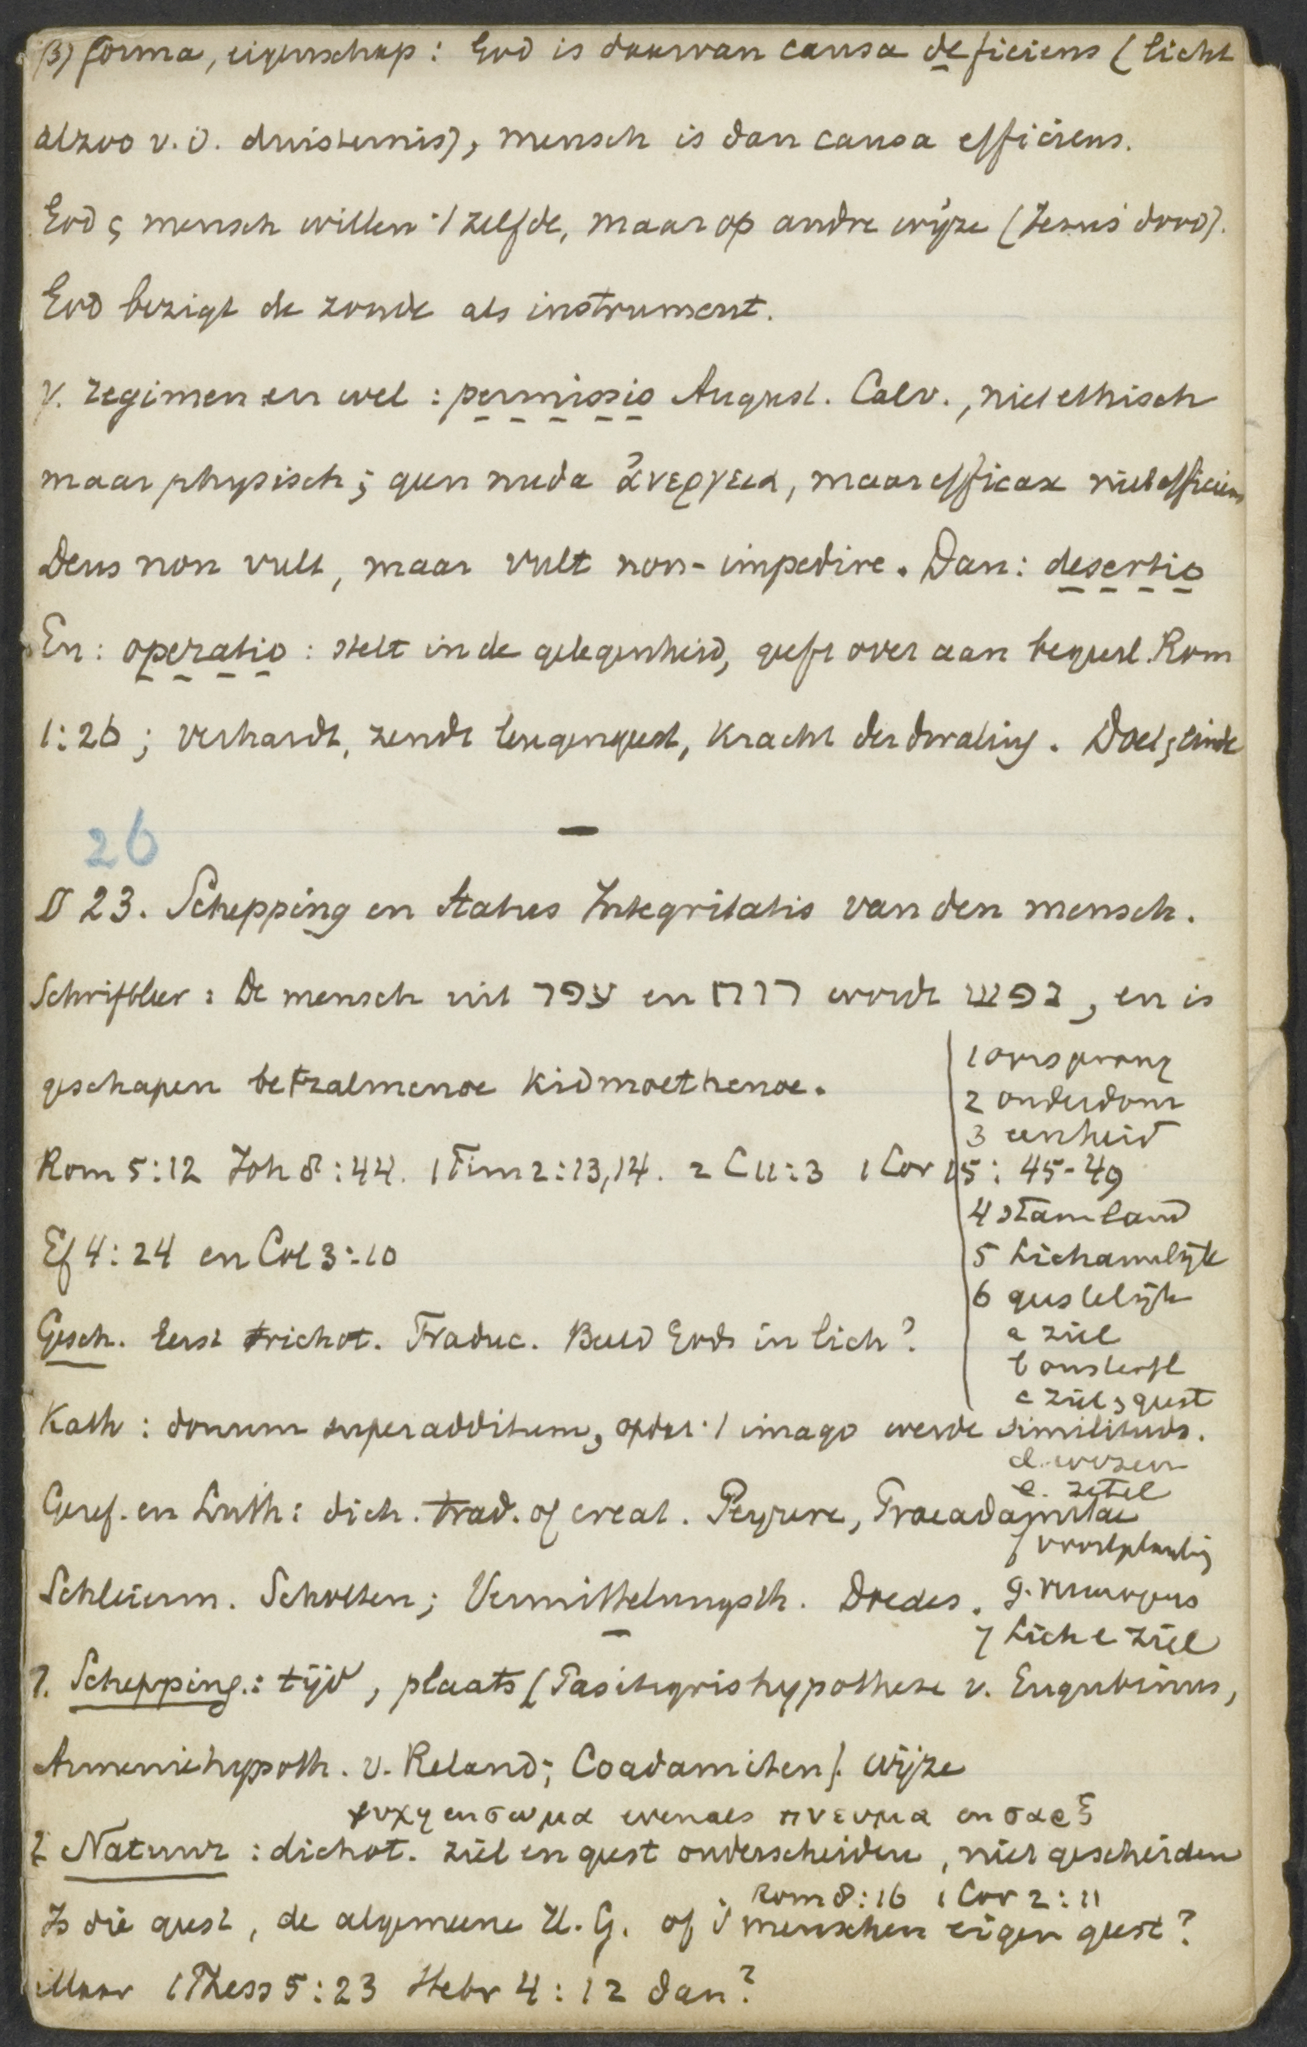 β) forma, eigenschap: God is daarvan causa deficiens (licht
alzoo v. d. duisternis), mensch is dan causa efficiens.
God & mensch willen 't zelfde, maar op andre wijze (Jezus' dood).
God bezigt de zonde als instrument.
γ. regimen en wel: permissio August. Calv., niet ethisch
maar physisch; geen nuda ἀνεργεια, maar efficax niet efficiens
Deus non vult, maar vult non-impedire. Dan: desertio
En: operatio: stelt in de gelegenheid, geeft over aan begeerl. Rom
1:26; verhardt, zendt leugengeest, kracht der dwaling. Doel, einde
26
§ 23. Schepping en status Integritatis van den mensch.
Schriftleer: De mensch uit עפר en רוח wordt נפש, en is
geschapen betzalmenoe kidmoethenoe.
Rom 5:12 Joh 8:44. 1 Tim 2:13,14. 2 C 11:3 1 Cor 15: 45-49
Ef 4:24 en Col 3:10
Gesch. Eerst trichot. Traduc. Beeld Gods in lich?
Kath: donum superadditum, opdat 't imago werde similitudo.
Geref. en Luth: dich. trad. of creat. Peyrere, Praeadamitae
Schleierm. Scholten; Vermittelungsth. Doedes.
1 oorsprong
2 ouderdom
3 eenheid
4 stamland
5 Lichamelijk
6 geestelijk
a ziel
b onsterfl
c ziel & geest
d. wezen
e. zetel
f voortplanting
g. vermogens
7 Lich & ziel
1. Schepping: tijd, plaats (Pasitigrishypothese v. Eugubinus,
Armeniehypoth. v. Reland; Coadamiten). wijze
ψυχη en σωμα evenals πνευμα en σαρξ
2 Natuur: dichot. ziel en geest onderscheiden, niet gescheiden
Rom 8:16 1 Cor 2:11
Is die geest, de algemeene H.G. of 's menschen eigen geest?
Maar 1 Thess 5:23 Hebr 4:12 dan?